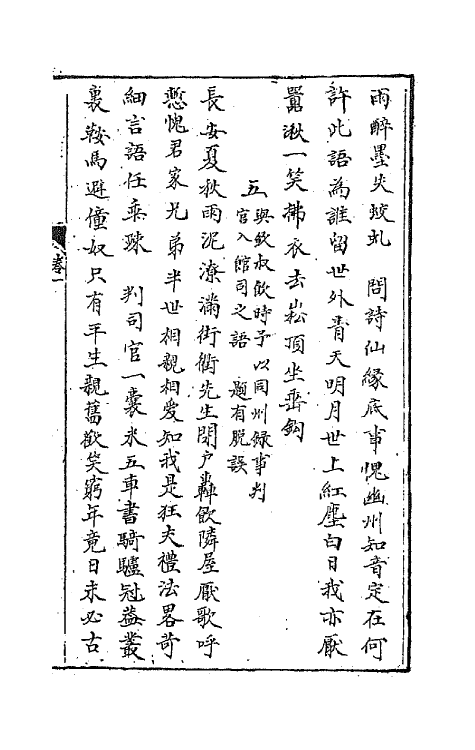 雨醉墨失蛟虬　問詩仙緣底事愧幽州知音定在何
許此語為誰留世外青天明月世上紅塵白日我亦厭
囂湫一笑拂衣去崧頂坐垂鈎
五
與欽叔飲時予以同州錄事判
官入館司之語　題有脫誤
長安夏秋雨泥潦滿街衢先生閉户轟飲隣屋厭歌呼
慙愧君家兄弟半世相親相愛知我是狂夫禮法畧苛
細言語任乖踈　判司官一囊米五車書騎驢冠葢叢
裏鞍馬避僮奴只有平生親舊歡笑窮年竟日未必古
卷一